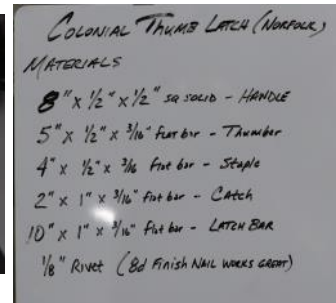 COLONIAL THUMB LATCH (NORFOLK)
MATERIALS
8" x 1/2" x 1/2" sq solid - HANDLE
5" x 1/2" x 3/16" flat bar - Thumber
4" x 1/2" x 3/16 flat bar - Staple
2" x 1" x 3/16" flat bar - Catch
10" x 1" x 3/16" flat bar - LATCH BAR
1/8" Rivet (8d Finish NAIL WORKS GREAT)